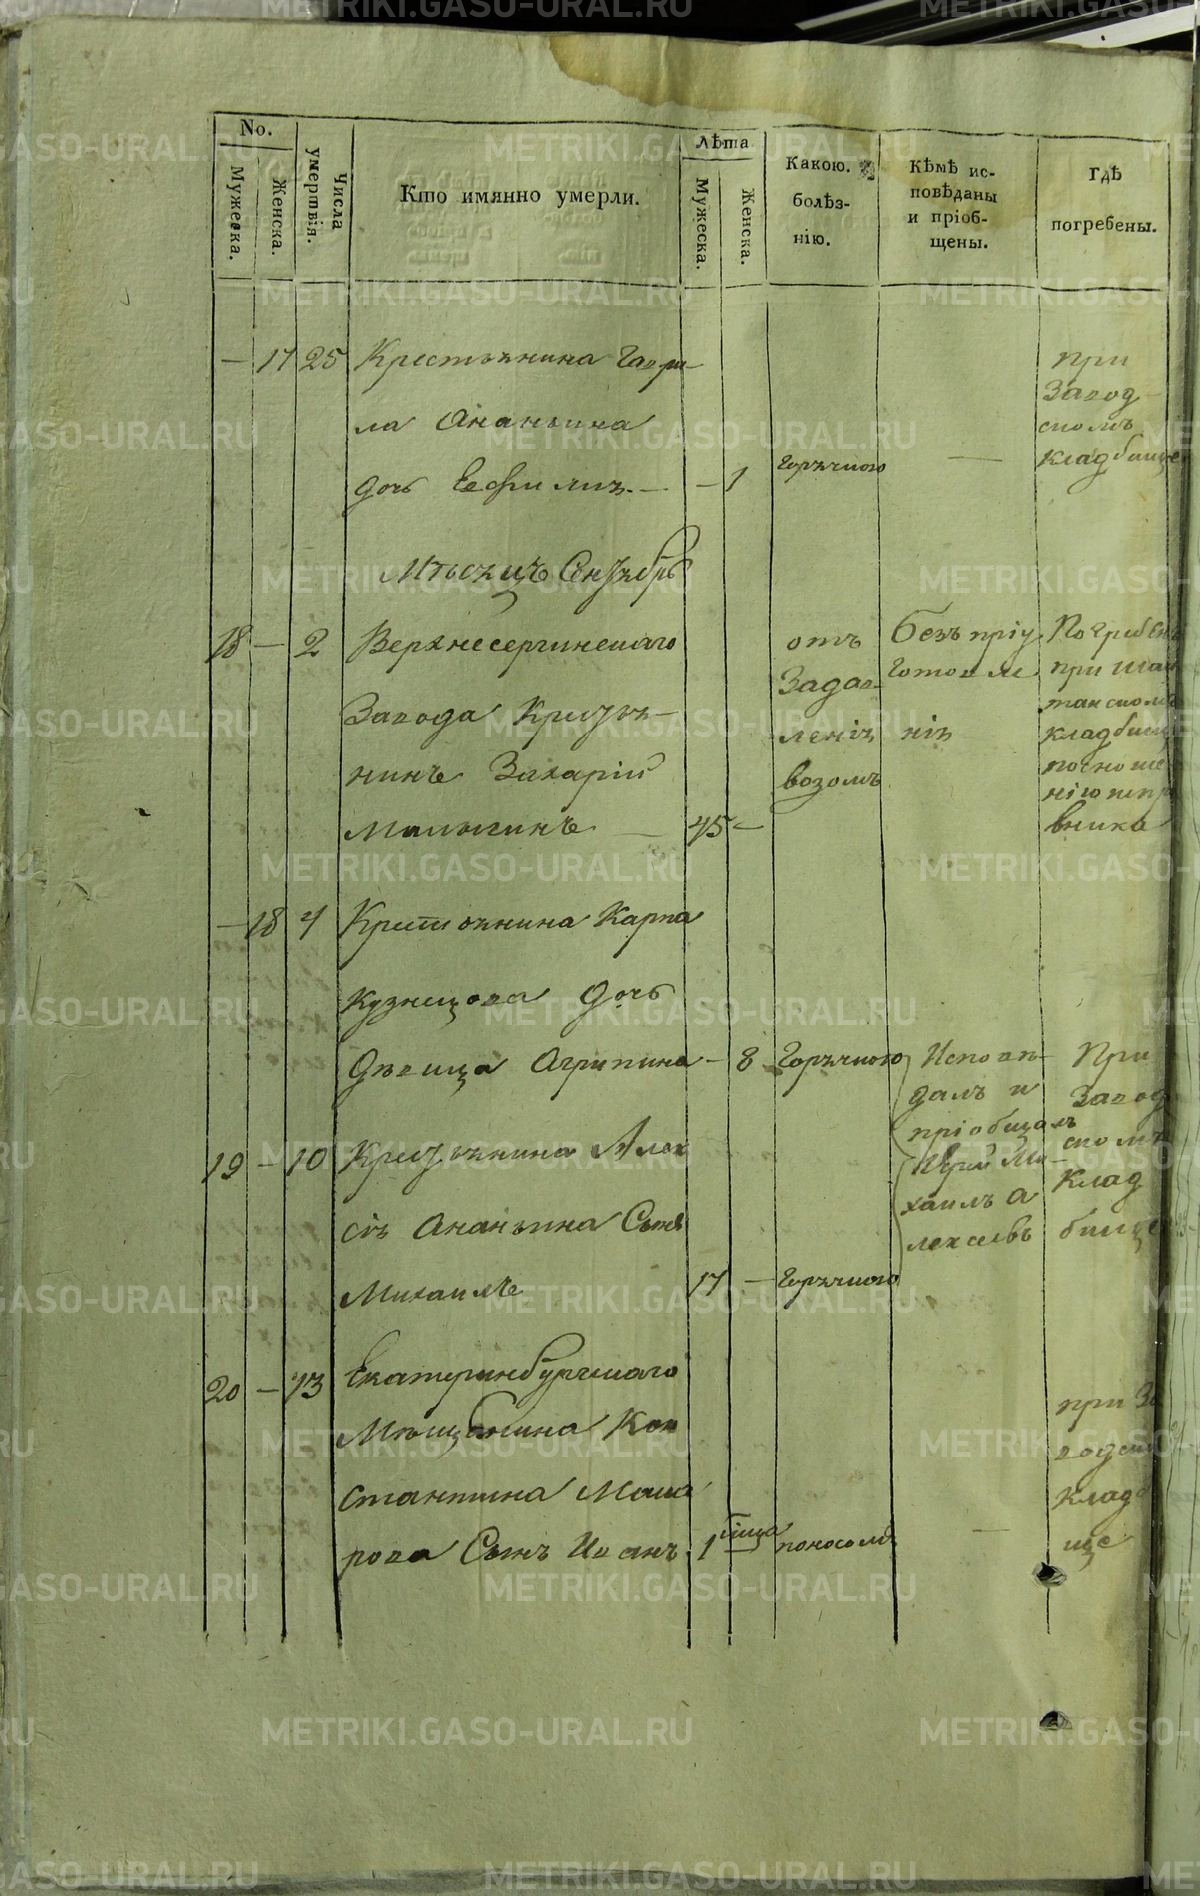 No.
Мужеска.
Женска.
Числа умертвія.
Кто имянно умерли.
Лѣта
Мужеска.
Женска.
Какою.
болѣз-
нію.
Кѣмъ ис-
повѣданы
и пріоб-
щены.
гдѣ
погребены.
— 17 25 Крестьянина Гаври-
ла Ананьина
дочь Евфимия — 1
Горячкою
—
при
Завод
скомъ
кладбище
Мѣсяцъ Сентябрь
18 — 2 Верхнесергинскаго
Завода Крестья-
нинъ Захарій
Малыгинъ — 45 —
отъ
Задав-
леніѧ
возомъ
безъ пріу
готовле
ніѧ
Погребенъ
при Шай
танскомъ
кладбищ
по сноше
нію испр
вника
— 18 4 Крестьянина Карпа
Кузнецова дочь
Дѣвица Агрипина — 8 Горячкою
Исповѣ-
далъ и
пріобщалъ
Іерей Ми-
хаилъ А
лексеевъ
При
Завод
скомъ
Клад
бище
19 — 10 Крестьянина Алек
сіѧ Ананьина Сынъ
Михаилъ 17 — Горячкою
20 — 13 Екатеринбургскаго
Мѣщанина Кон
стантина Мака
рова Сынъ Иванъ 1
поносомъ
—
при За
водск
кладб
ище
METRIKI.GASO-URAL.RU